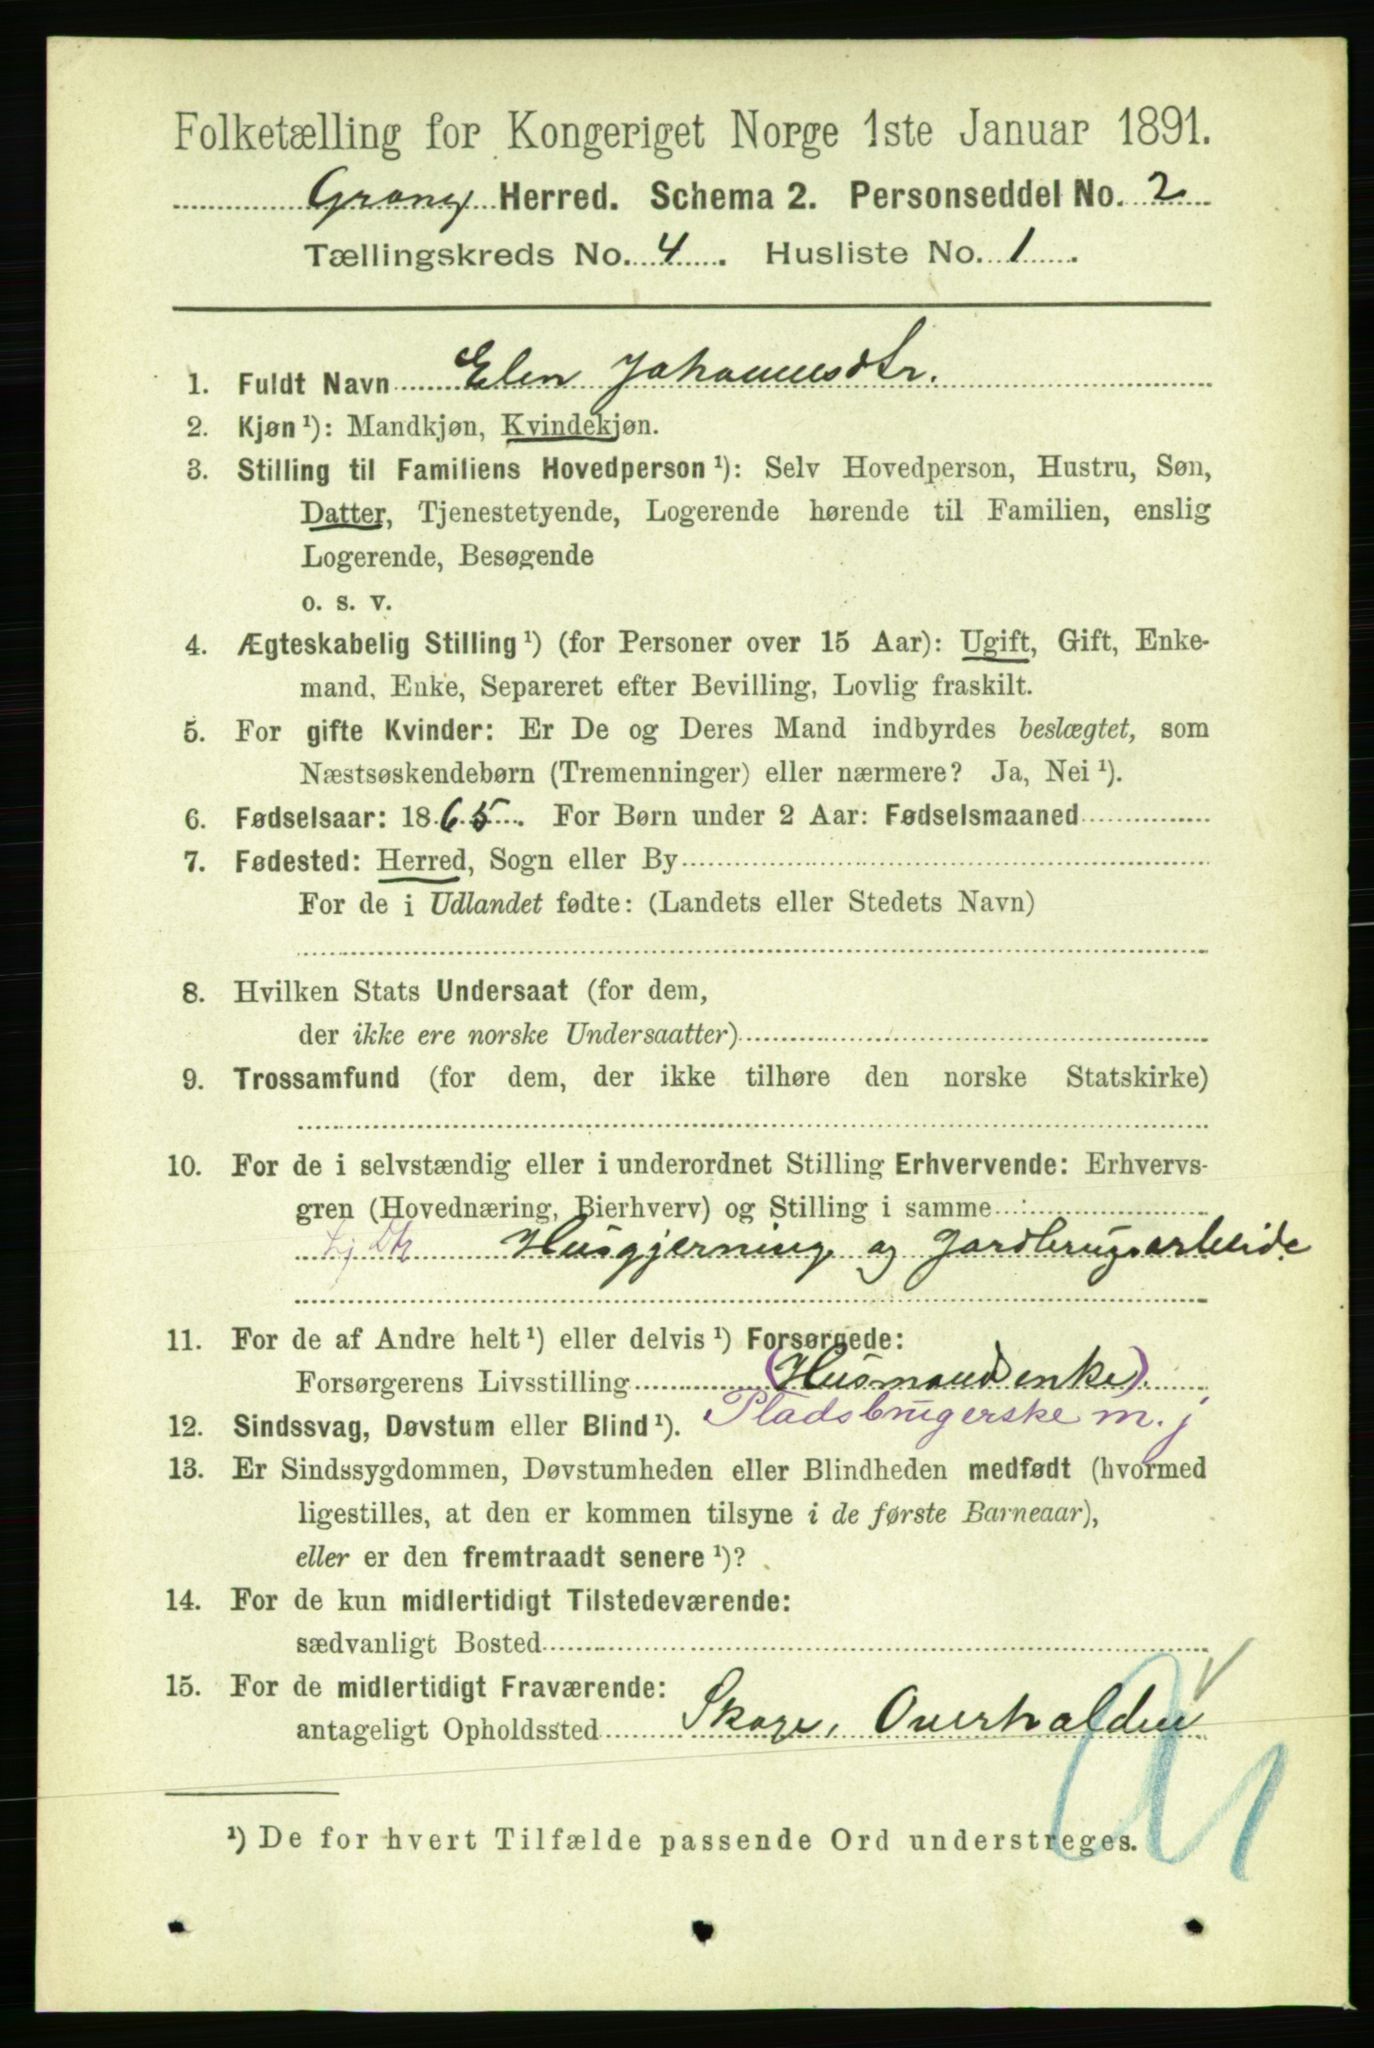 Folketælling for Kongeriget Norge 1ste Januar 1891.
Grong Herred. Schema 2. Personseddel No. 2
Tællingskreds No. 4. Husliste No. 1.
1. Fuldt Navn Elen Johannesdtr.
2. Kjøn¹): Mandkjøn, Kvindekjøn.
3. Stilling til Familiens Hovedperson¹): Selv Hovedperson, Hustru, Søn,
Datter, Tjenestetyende, Logerende hørende til Familien, enslig
Logerende, Besøgende
o. s. v.
4. Ægteskabelig Stilling¹) (for Personer over 15 Aar): Ugift, Gift, Enke-
mand, Enke, Separeret efter Bevilling, Lovlig fraskilt.
5. For gifte Kvinder: Er De og Deres Mand indbyrdes beslægtet, som
Næstsøskendebørn (Tremenninger) eller nærmere? Ja, Nei¹).
6. Fødselsaar: 1865. For Børn under 2 Aar: Fødselsmaaned
7. Fødested: Herred, Sogn eller By
For de i Udlandet fødte: (Landets eller Stedets Navn)
8. Hvilken Stats Undersaat (for dem,
der ikke ere norske Undersaatter)
9. Trossamfund (for dem, der ikke tilhøre den norske Statskirke)
10. For de i selvstændig eller i underordnet Stilling Erhvervende: Erhvervs-
gren (Hovednæring, Bierhverv) og Stilling i samme
Husgjerning og Jordbrugsarbeide
11. For de af Andre helt¹) eller delvis¹) Forsørgede:
Forsørgerens Livsstilling (Husmandsenke).
Pladsbrugerske m. j
12. Sindssvag, Døvstum eller Blind¹).
13. Er Sindssygdommen, Døvstumheden eller Blindheden medfødt (hvormed
ligestilles, at den er kommen tilsyne i de første Barneaar),
eller er den fremtraadt senere¹)?
14. For de kun midlertidigt Tilstedeværende:
sædvanligt Bosted
15. For de midlertidigt Fraværende:
antageligt Opholdssted Skage, Overhalden
¹) De for hvert Tilfælde passende Ord understreges.